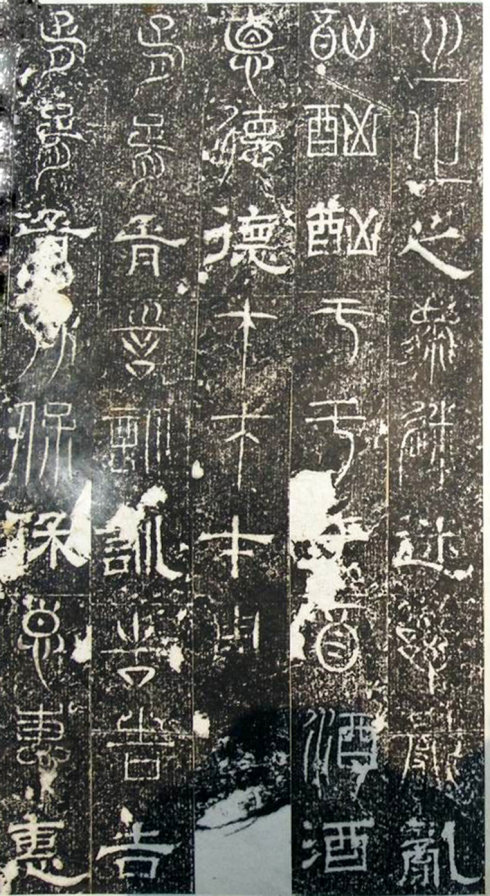 之之之迷迷迷亂亂亂
酗酗酗于于于酒酒酒
德德德才才才
胥胥胥訓訓訓告告告
胥胥胥保保保惠惠惠